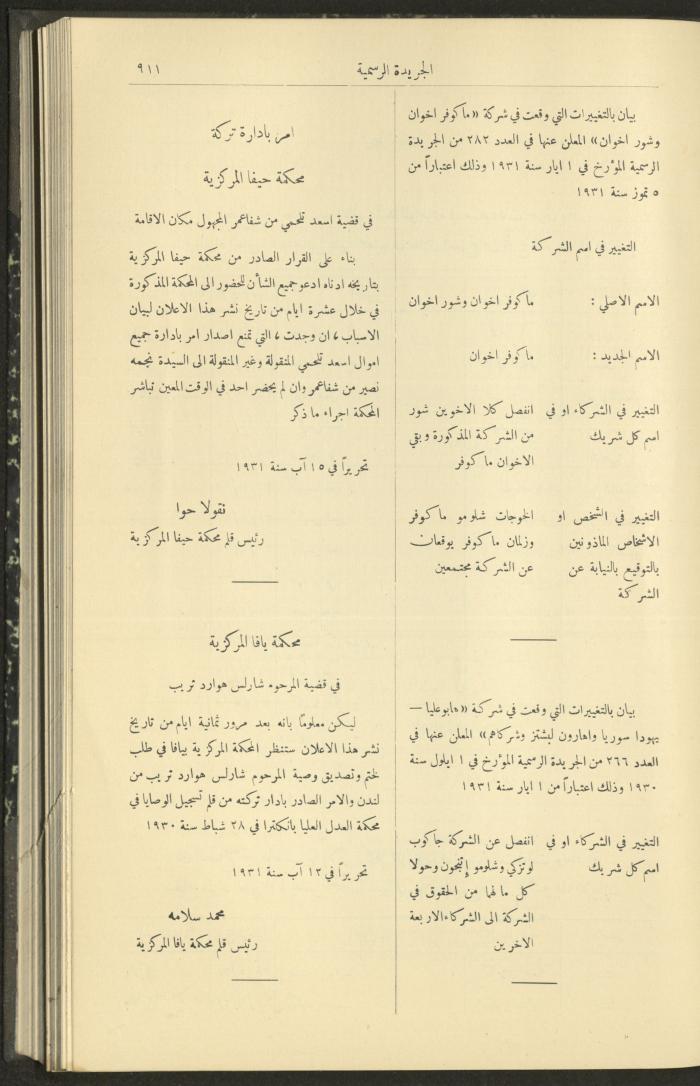 الجريدة الرسمية
٩١١
بيان بالتغييرات التي وقعت في شركة «ماكوفر اخوان
وشور اخوان» المعلن عنها في العدد ٢٨٢ من الجريدة
الرسمية المؤرخ في ١ ايار سنة ١٩٣١ وذلك اعتباراً من
٥ تموز سنة ١٩٣١
التغيير في اسم الشركة
الاسم الاصلي : ماكوفر اخوان وشور اخوان
الاسم الجديد : ماكوفر اخوان
التغيير في الشركاء او في انفصل كلا الاخوين شور
اسم كل شريك من الشركة المذكورة وبقي
الاخوان ماكوفر
التغيير في الشخص او الخوجات شلومو ماكوفر
الاشخاص الماذونين وزلمان ماكوفر يوقعان
بالتوقيع بالنيابة عن عن الشركة مجتمعين
الشركة
بيان بالتغييرات التي وقعت في شركة «هابوعليا —
يهودا سوريا واهارون ليشتز وشركاهم» المعلن عنها في
العدد ٢٦٦ من الجريدة الرسمية المؤرخ في ١ ايلول سنة
١٩٣٠ وذلك اعتباراً من ١ ايار سنة ١٩٣١
التغيير في الشركاء او في انفصل عن الشركة جاكوب
اسم كل شريك لوتزكي وشلومو إتبجون وحولا
كل ما لهما من الحقوق في
الشركة الى الشركاء الاربعة
الاخرين
امر بادارة تركة
محكمة حيفا المركزية
في قضية اسعد تلحمي من شفاعمر المجهول مكان الاقامة
بناء على القرار الصادر من محكمة حيفا المركزية
بتاريخه ادناه ادعو جميع الشأن للحضور الى المحكمة المذكورة
في خلال عشرة ايام من تاريخ نشر هذا الاعلان لبيان
الاسباب ، ان وجدت ، التي تمنع اصدار امر بادارة جميع
اموال اسعد تلحمي المنقولة وغير المنقولة الى السيدة نجمه
نصير من شفاعمر وان لم يحضر احد في الوقت المعين تباشر
المحكمة اجراء ما ذكر
تحريراً في ١٥ آب سنة ١٩٣١
نقولا حوا
رئيس قلم محكمة حيفا المركزية
محكمة يافا المركزية
في قضية المرحوم شارلس هوارد تريب
ليكن معلومًا بانه بعد مرور ثمانية ايام من تاريخ
نشر هذا الاعلان ستنظر المحكمة المركزية بيافا في طلب
ختم وتصديق وصية المرحوم شارلس هوارد تريب من
لندن والامر الصادر بادار تركته من قلم تسجيل الوصايا في
محكمة العدل العليا بانكلترا في ٢٨ شباط سنة ١٩٣٠
تحريراً في ١٢ آب سنة ١٩٣١
محمد سلامه
رئيس قلم محكمة يافا المركزية